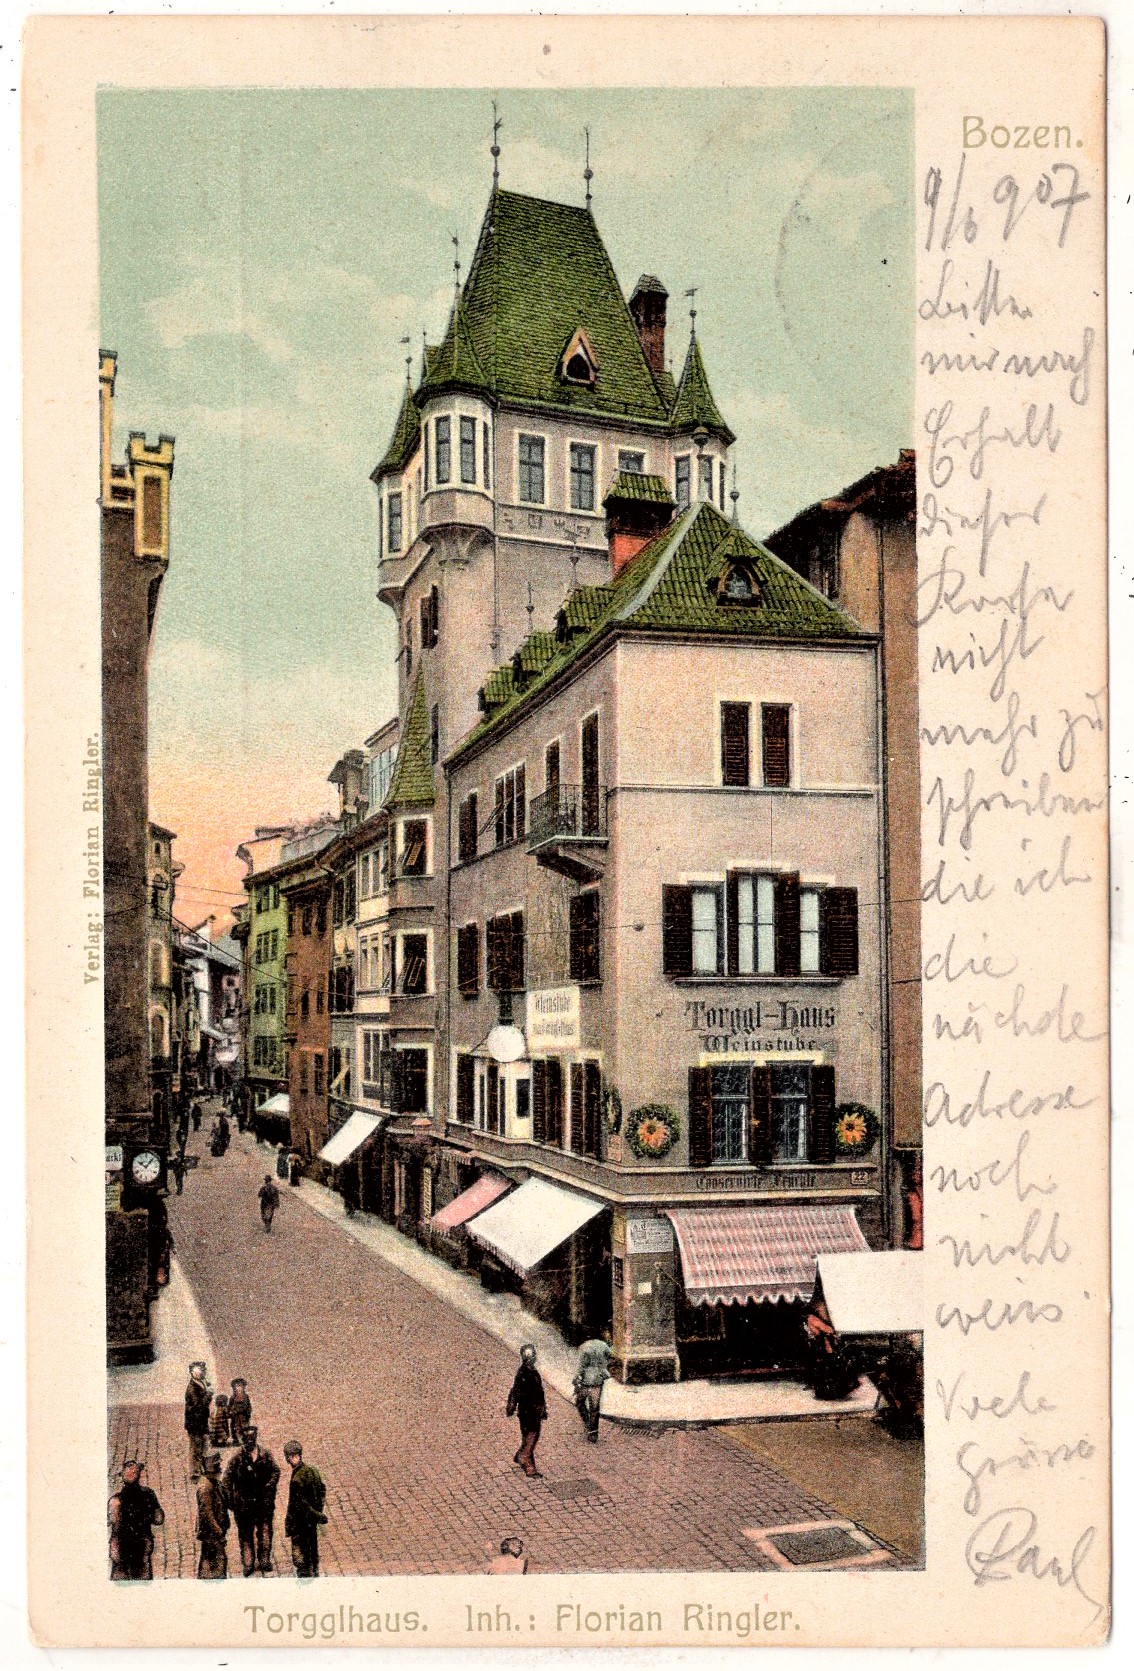 Bozen.
9/6 907
Bitte
mir nach
Erhalt
dieser
Karte
nicht
mehr zu
schreiben
die ich
die
nächste
Adresse
noch
nicht
weiss
Viele
Grüsse
Paul
Verlag: Florian Ringler.
Weinstube
Torggl-Haus
Weinstube.
Conservirte Früchte
22
Torgglhaus. Inh.: Florian Ringler.